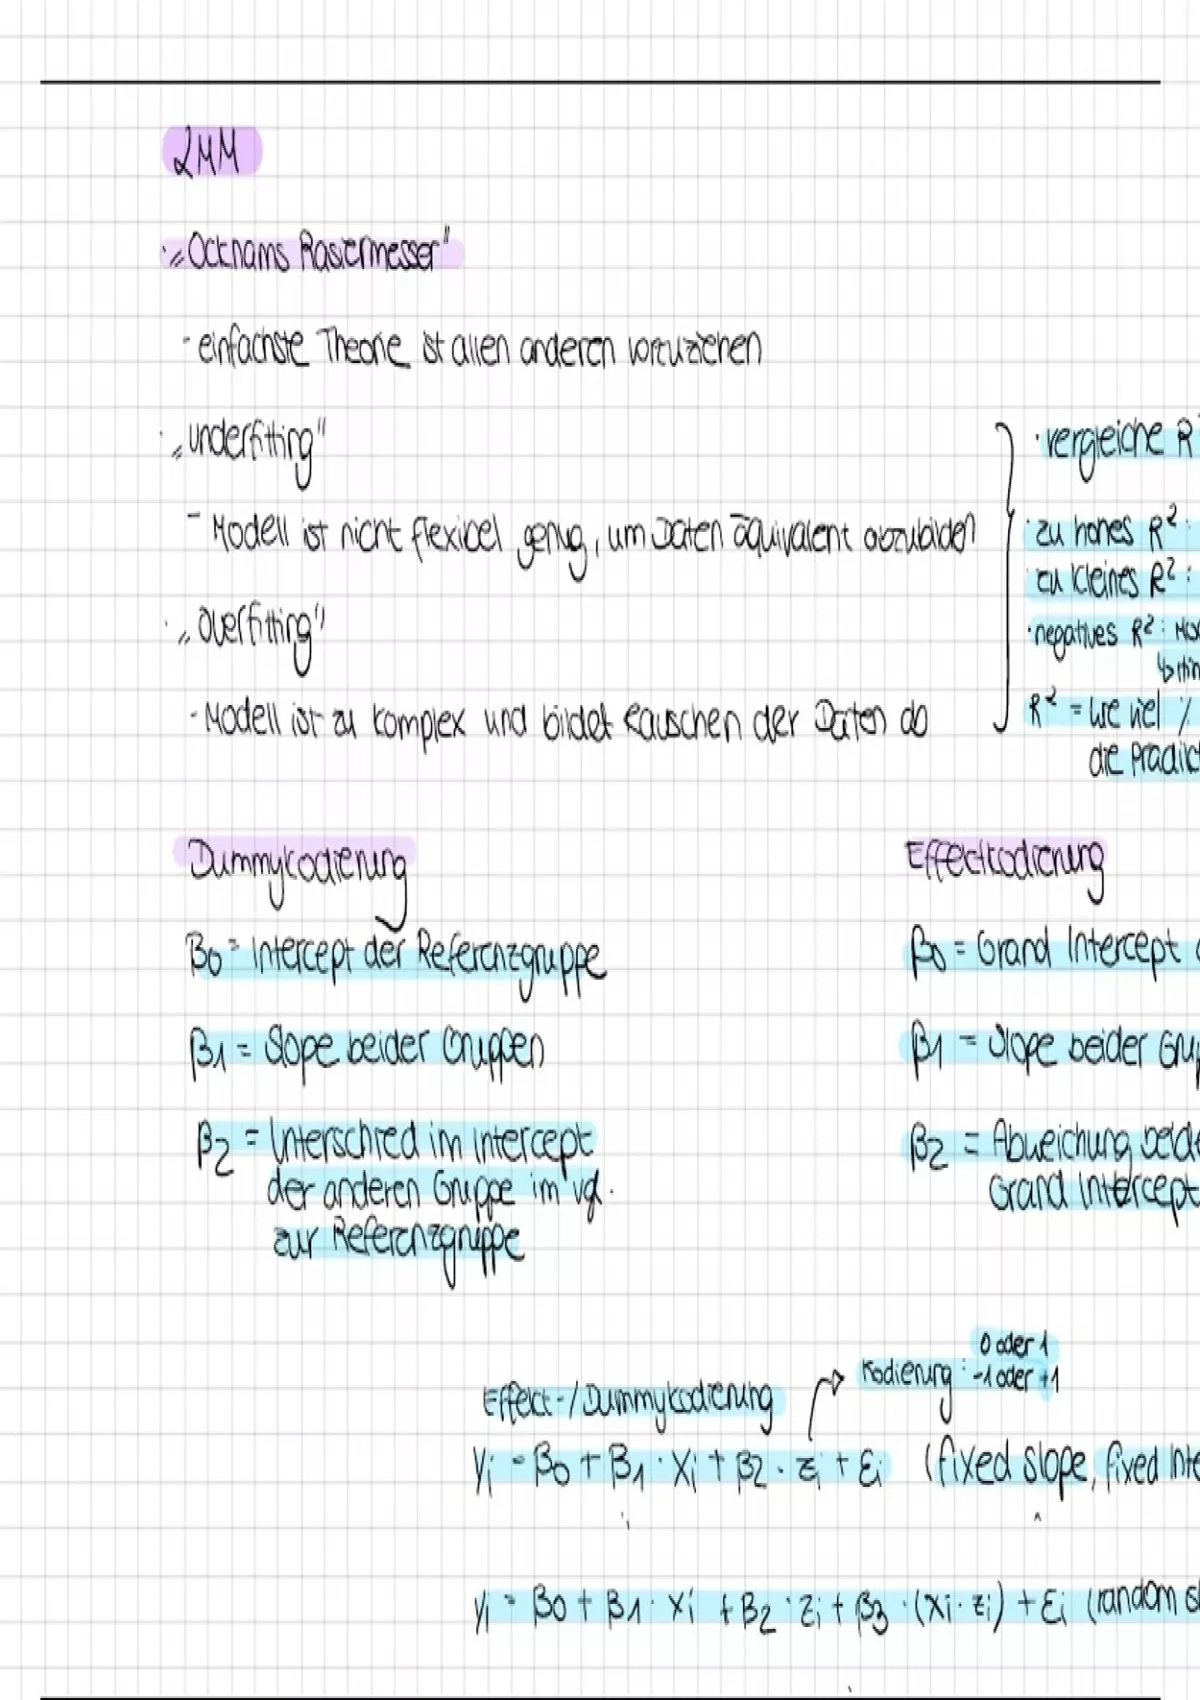 LMM
· „Ockhams Rasiermesser"
- einfachste Theorie ist allen anderen vorzuziehen
· „underfitting"
- Modell ist nicht flexibel genug, um Daten äquivalent abzubilden
· „overfitting"
- Modell ist zu komplex und bildet Rauschen der Daten ab
· vergleiche R²
· zu hohes R² :
zu kleines R² :
· negatives R² :
R² = wie viel %
die
Dummykodierung
β0 = Intercept der Referenzgruppe
β1 = Slope beider Gruppen
β2 = Unterschied im Intercept
der anderen Gruppe im vgl.
zur Referenzgruppe
Effektkodierung
β0 = Grand Intercept
β1 = Slope beider
β2 = Abweichung
Grand Intercept
0 oder 1
Kodierung : -1 oder +1
Effekt-/Dummykodierung
yi = β0 + β1 · xi + β2 · zi + εi (fixed slope, fixed
yi = β0 + β1 · xi + β2 · zi + β3 · (xi · zi) + εi (random